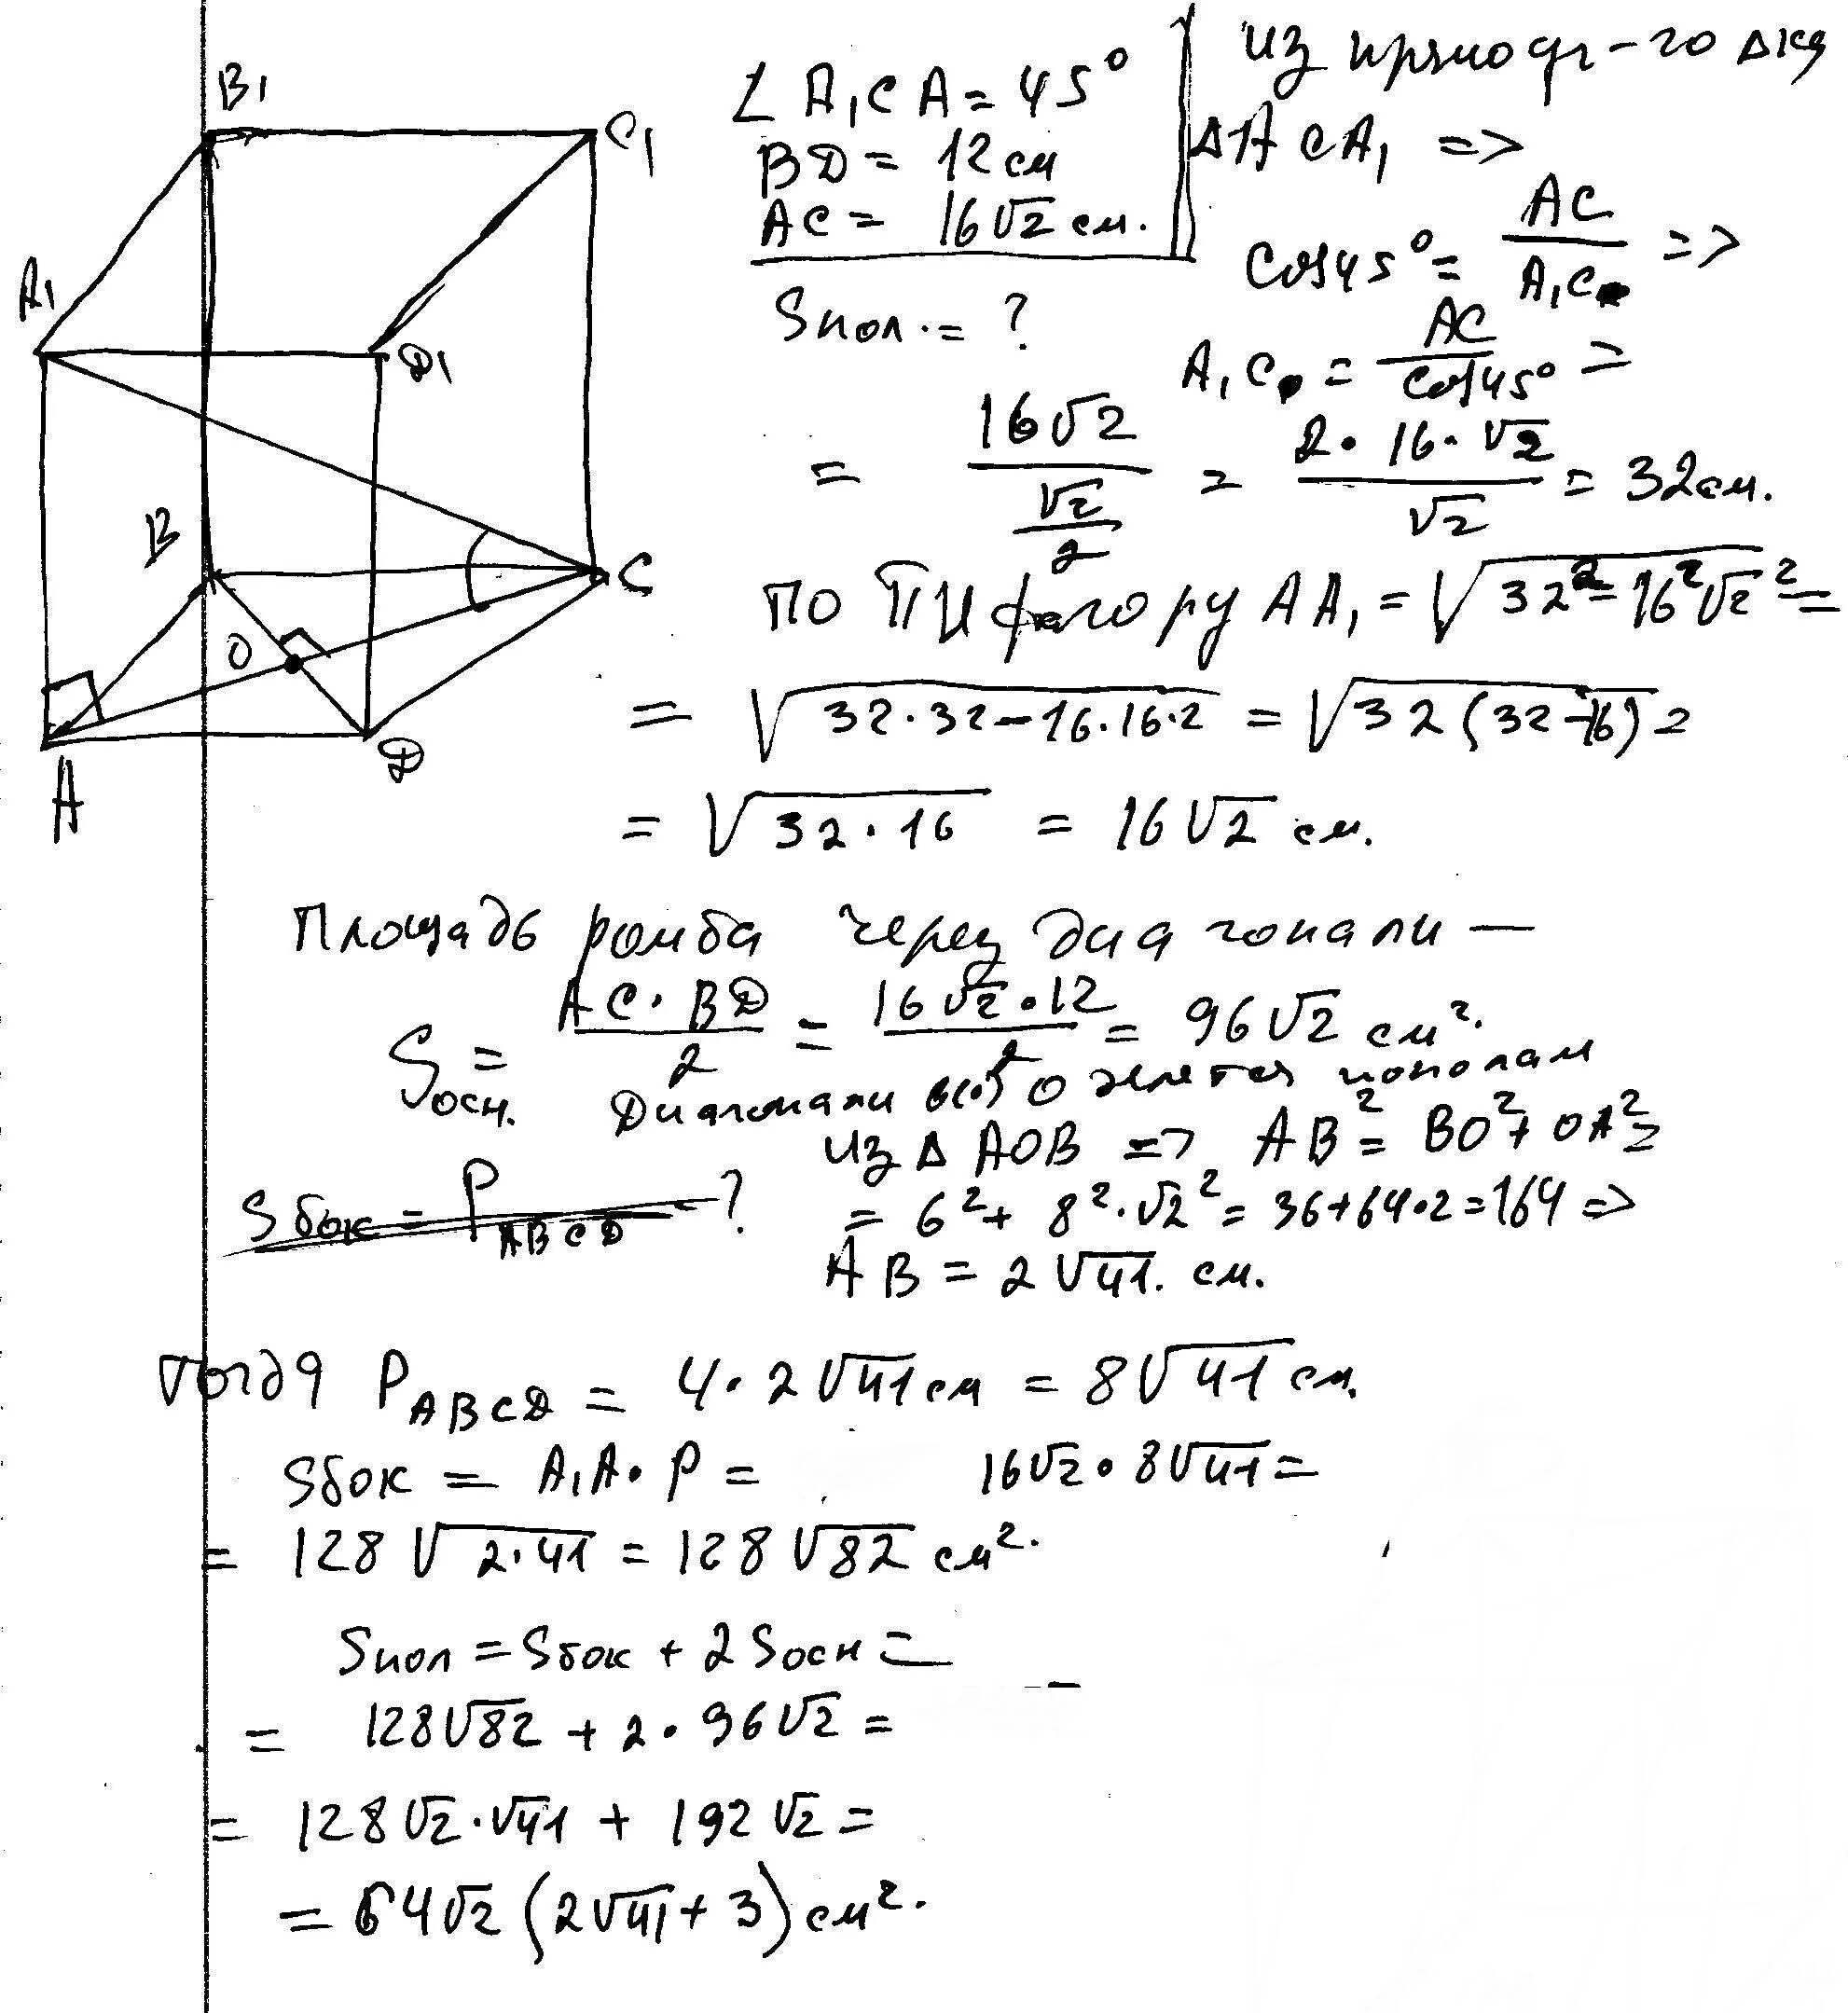 B₁
C₁
A₁
D₁
B
C
O
A
D
∠A₁CA = 45°
BD = 12 см
AC = 16√2 см.
Sпол. = ?
из
ΔACA₁ =>
cos45° = AC/A₁C =>
A₁C = AC/cos45° =
= 16√2/(√2/2) = 2·16·√2/√2 = 32 см.
По Пифагору AA₁ = √(32² - 16²√2²) =
= √(32·32 - 16·16·2) = √(32(32-16)) =
= √(32·16) = 16√2 см.
Площадь ромба через диагонали —
Sосн. = AC·BD/2 = 16√2·12/2 = 96√2 см².
Диагонали в(·) O делятся пополам
из Δ AOB => AB² = BO² + OA² =
Sбок = P ABCD - ?
= 6² + 8²·√2² = 36+64·2 = 164 =>
AB = 2√41. см.
Тогда P ABCD = 4·2√41 см = 8√41 см.
Sбок = A₁A·P = 16√2·8√41 =
= 128√(2·41) = 128√82 см².
Sпол = Sбок + 2Sосн =
= 128√82 + 2·96√2 =
= 128√2·√41 + 192√2 =
= 64√2 (2√41 + 3) см².